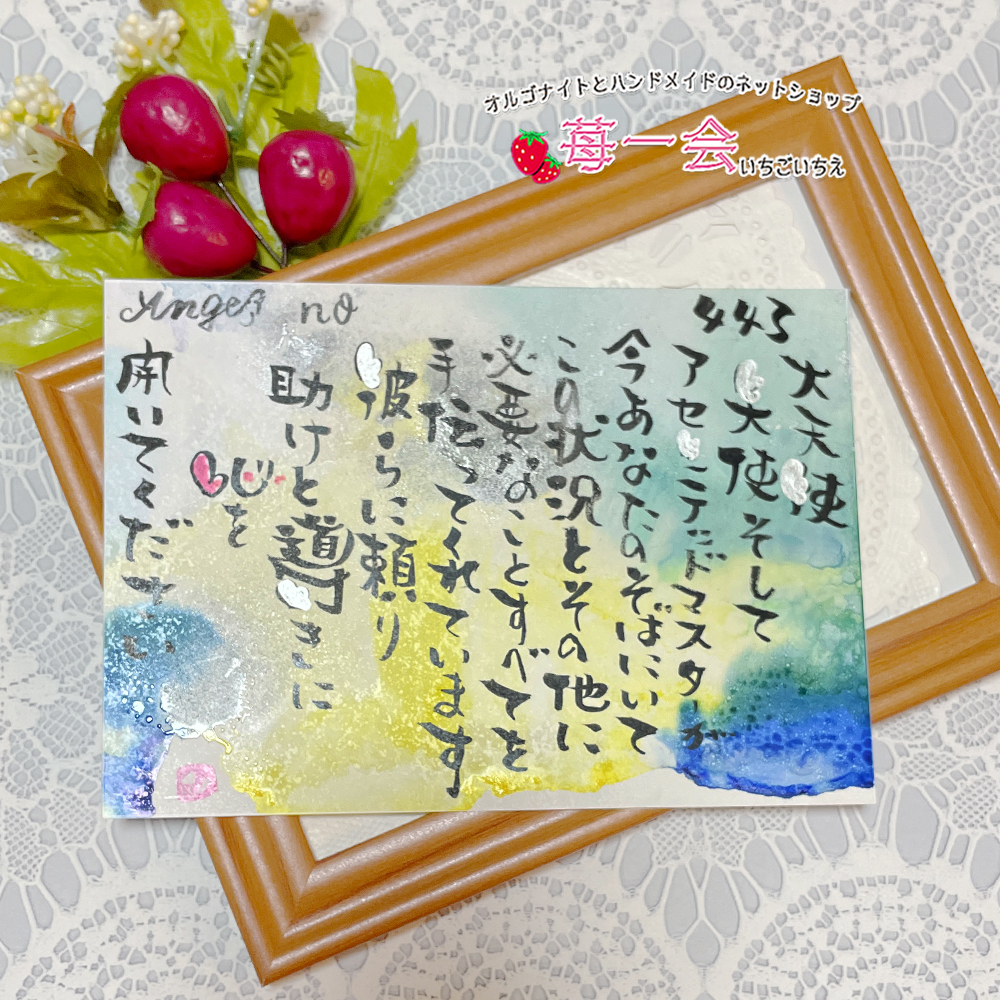 オルゴナイトとハンドメイドのネットショップ
苺一会
いちごいちえ
Angel no
443
大天使
大天使そして
アセンデッドマスターが
今あなたのそばにいて
この状況とその他に
必要なことすべてを
手伝ってくれています
彼らに頼り
助けと導きに
心を
開いてください